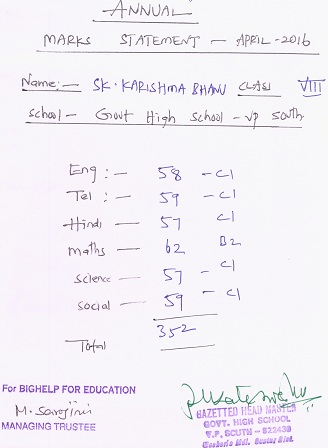 ANNUAL
MARKS STATEMENT - APRIL-2016
Name:- SK. KARISHMA BHANU CLASS VIII
School- Govt High School - vp south
Eng :- 58 - C1
Tel :- 59 - C1
Hindi - 57 C1
maths - 62 B2
science - 57 - C1
social - 59 - C1
Total 352
For BIGHELP FOR EDUCATION
M. Sarojini
MANAGING TRUSTEE
GAZETTED HEAD MASTER
GOVT. HIGH SCHOOL
V.P. SOUTH - 522439